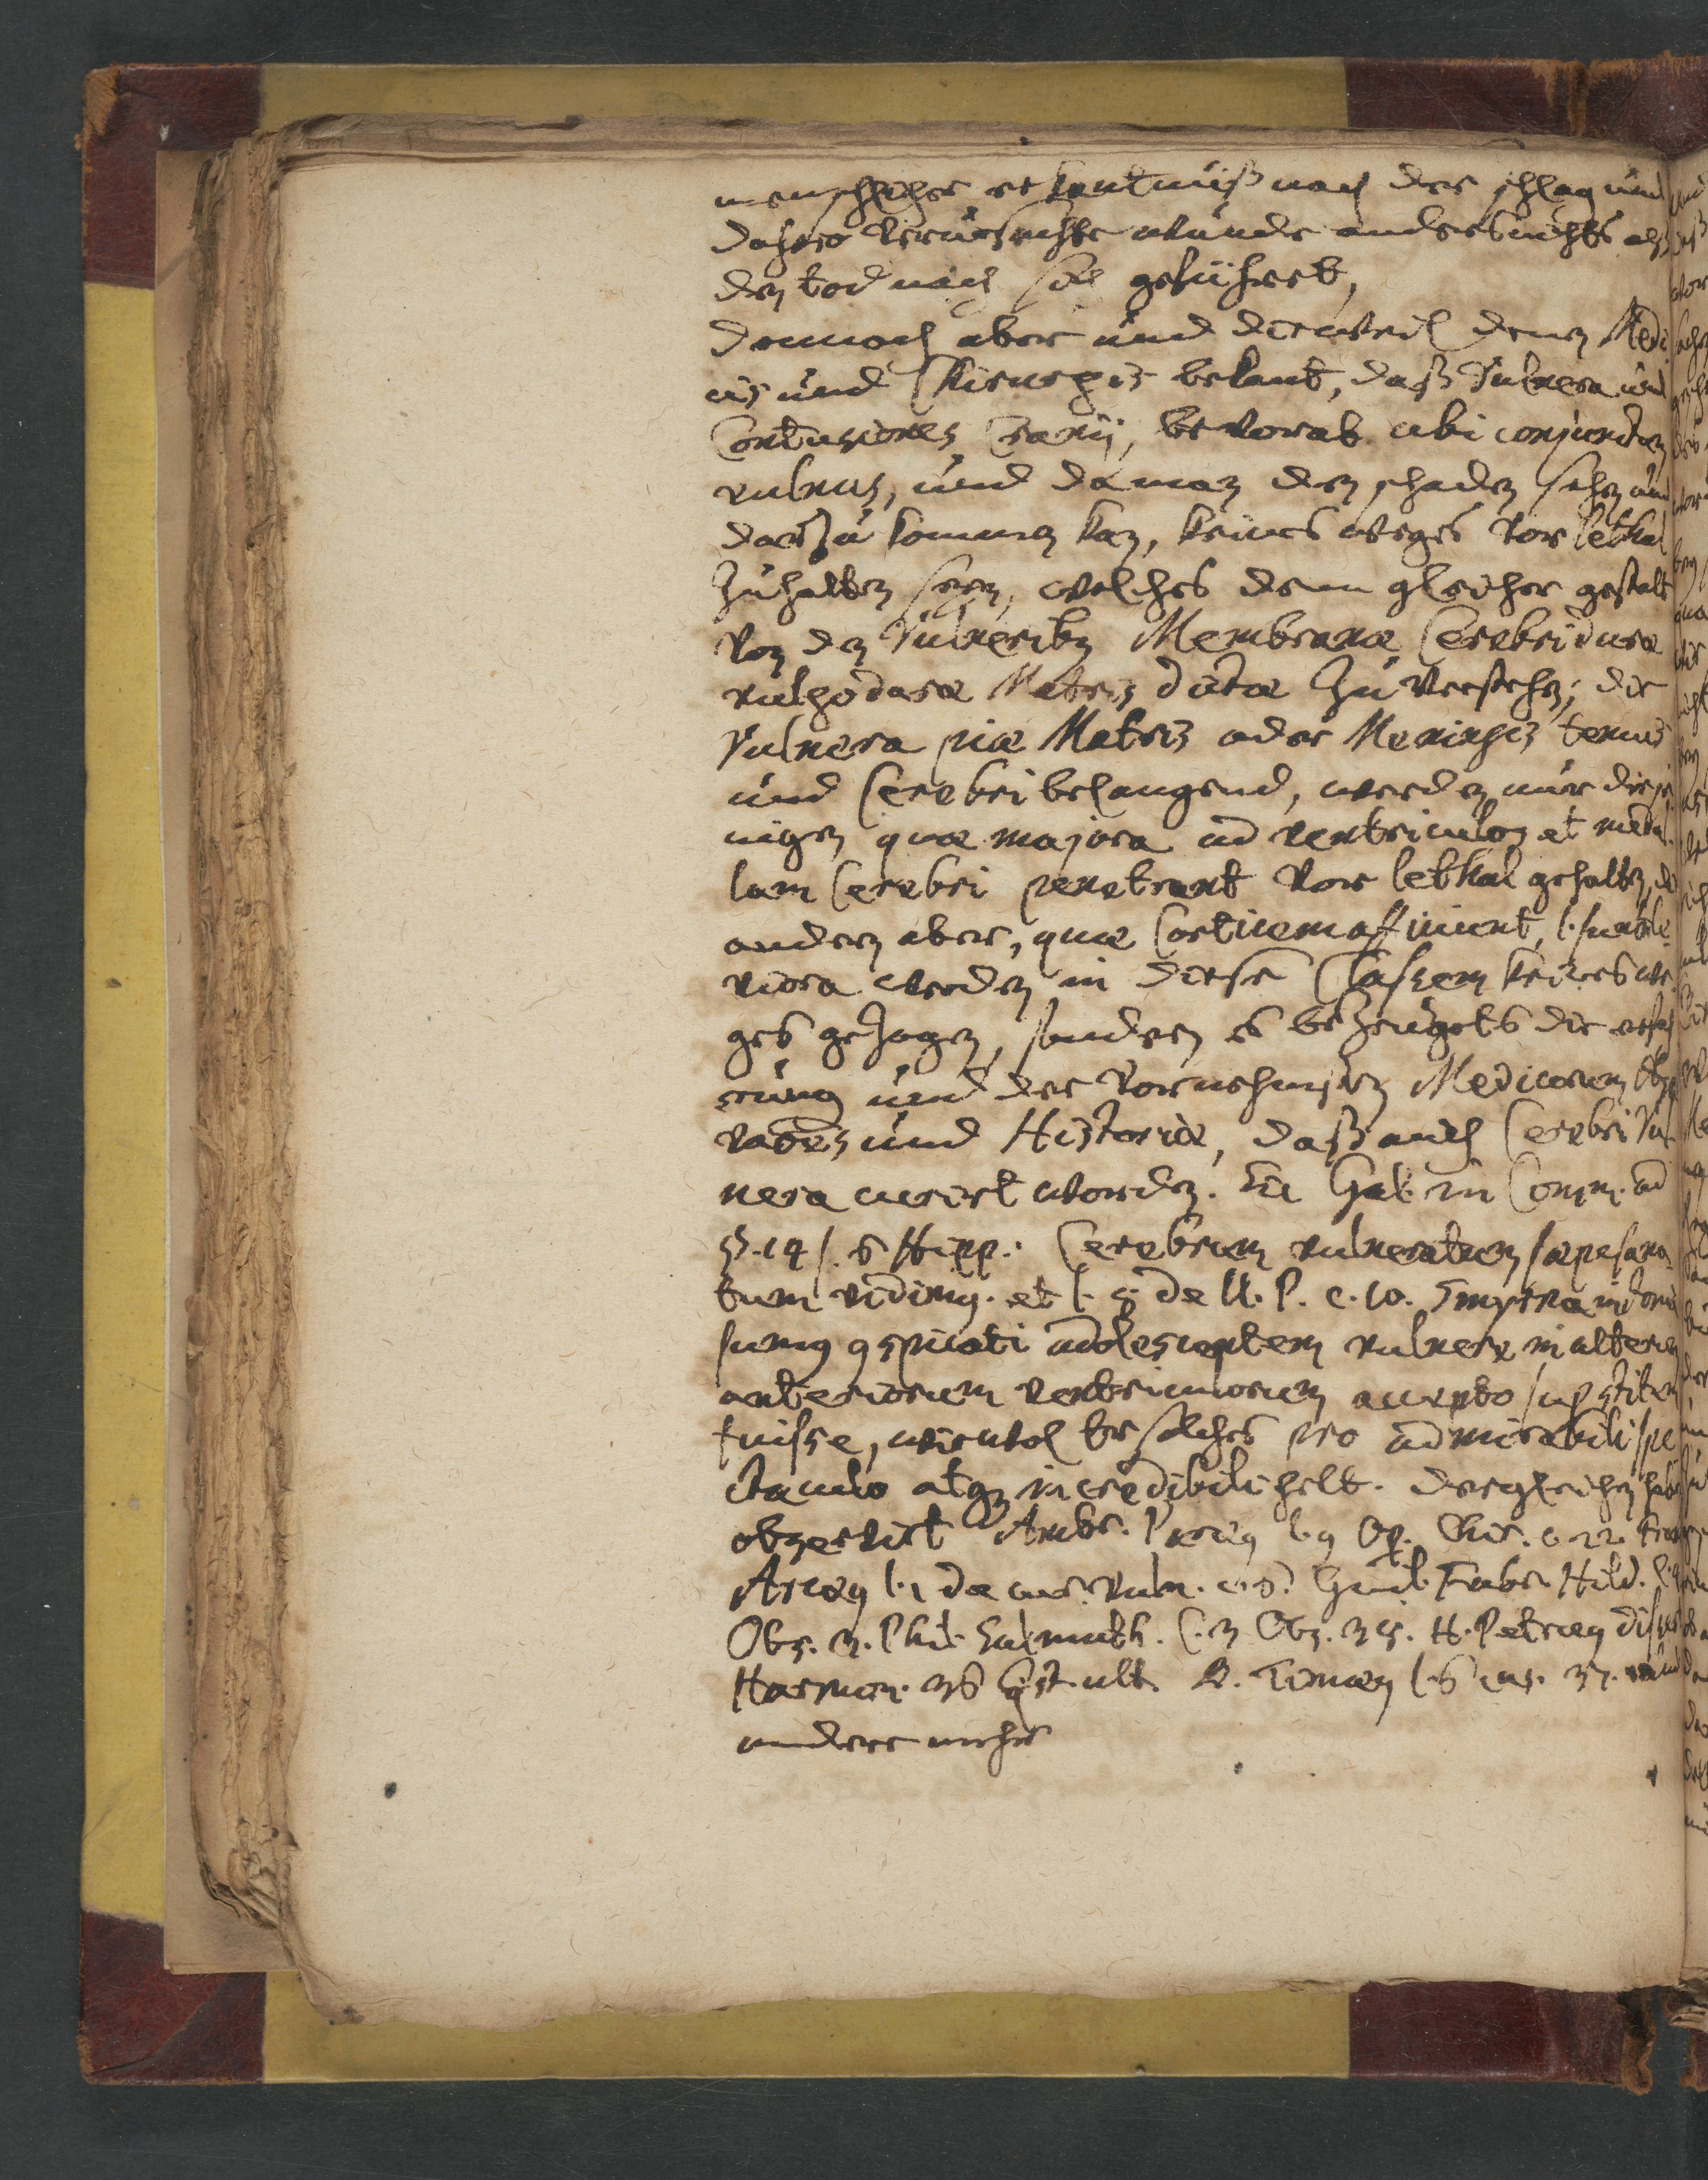 menschlicher erkantnüß nach der schlag und
dahero verursachte wunde anders nichts alß
den tod nach sich geführet,
Demnach aber und dieweil denen Medi-
cis und Chirurgis bekant, daß vulnera und
Contusiones Cranij, bevorab ubi conjunctum
vulnus, und da man den schaden sehen und
darzu kommen kan, keines weges vor lethal
zuhalten seyn, welches denn gleicher gestalt
von den Vulneribus Membranæ Cerebri duræ
vulgo duræ Matris dictæ zuverstehen; die
Vulnera piæ Matris oder Meningis tenuis
und Cerebri belangend, werden nur dieje-
nigen quæ majora ad ventriculos et medul-
lam Cerebri penetrant vor lethal gehalten, die
anderen aber, quæ Corticem afficiunt, l. sunt le-
viora werden in diese Classem keineswe-
ges gezogen, sondern es bezeügets die erfah-
rung und der vornehmsten Medicorum Obser-
vationes und Historiæ, daß auch Cerebri vul-
nera curirt worden. Gal. in Comm. ad
18. l. 6 Hipp.: Cerebrum vulneratum sæpe sana-
tum vidimus. et l. 8. de U. P. c. 10. Smyrnæ in Ionia
sumus conspicati adolescentem vulnere in alterum
anteriorum ventriculorum accepto superstitem
fuisse, wiewol er solches pro admirabili spe-
ctaculo atque incredibili helt. dergleichen haben
observirt Ambr. Paræus l. 9 Op. Chir. c. 22. Franc.
Arcæus l. 1 de cur. vuln. c. 6. Guil. Fabr. Hild. l. 4
Obs. 3. Phil. Salmuth. C. 3 Obs. 35. H. Petræus disp.
Harmon. 36 Quæst. ult. B. Timæus l. 6 cas. 37. und
andere mehr